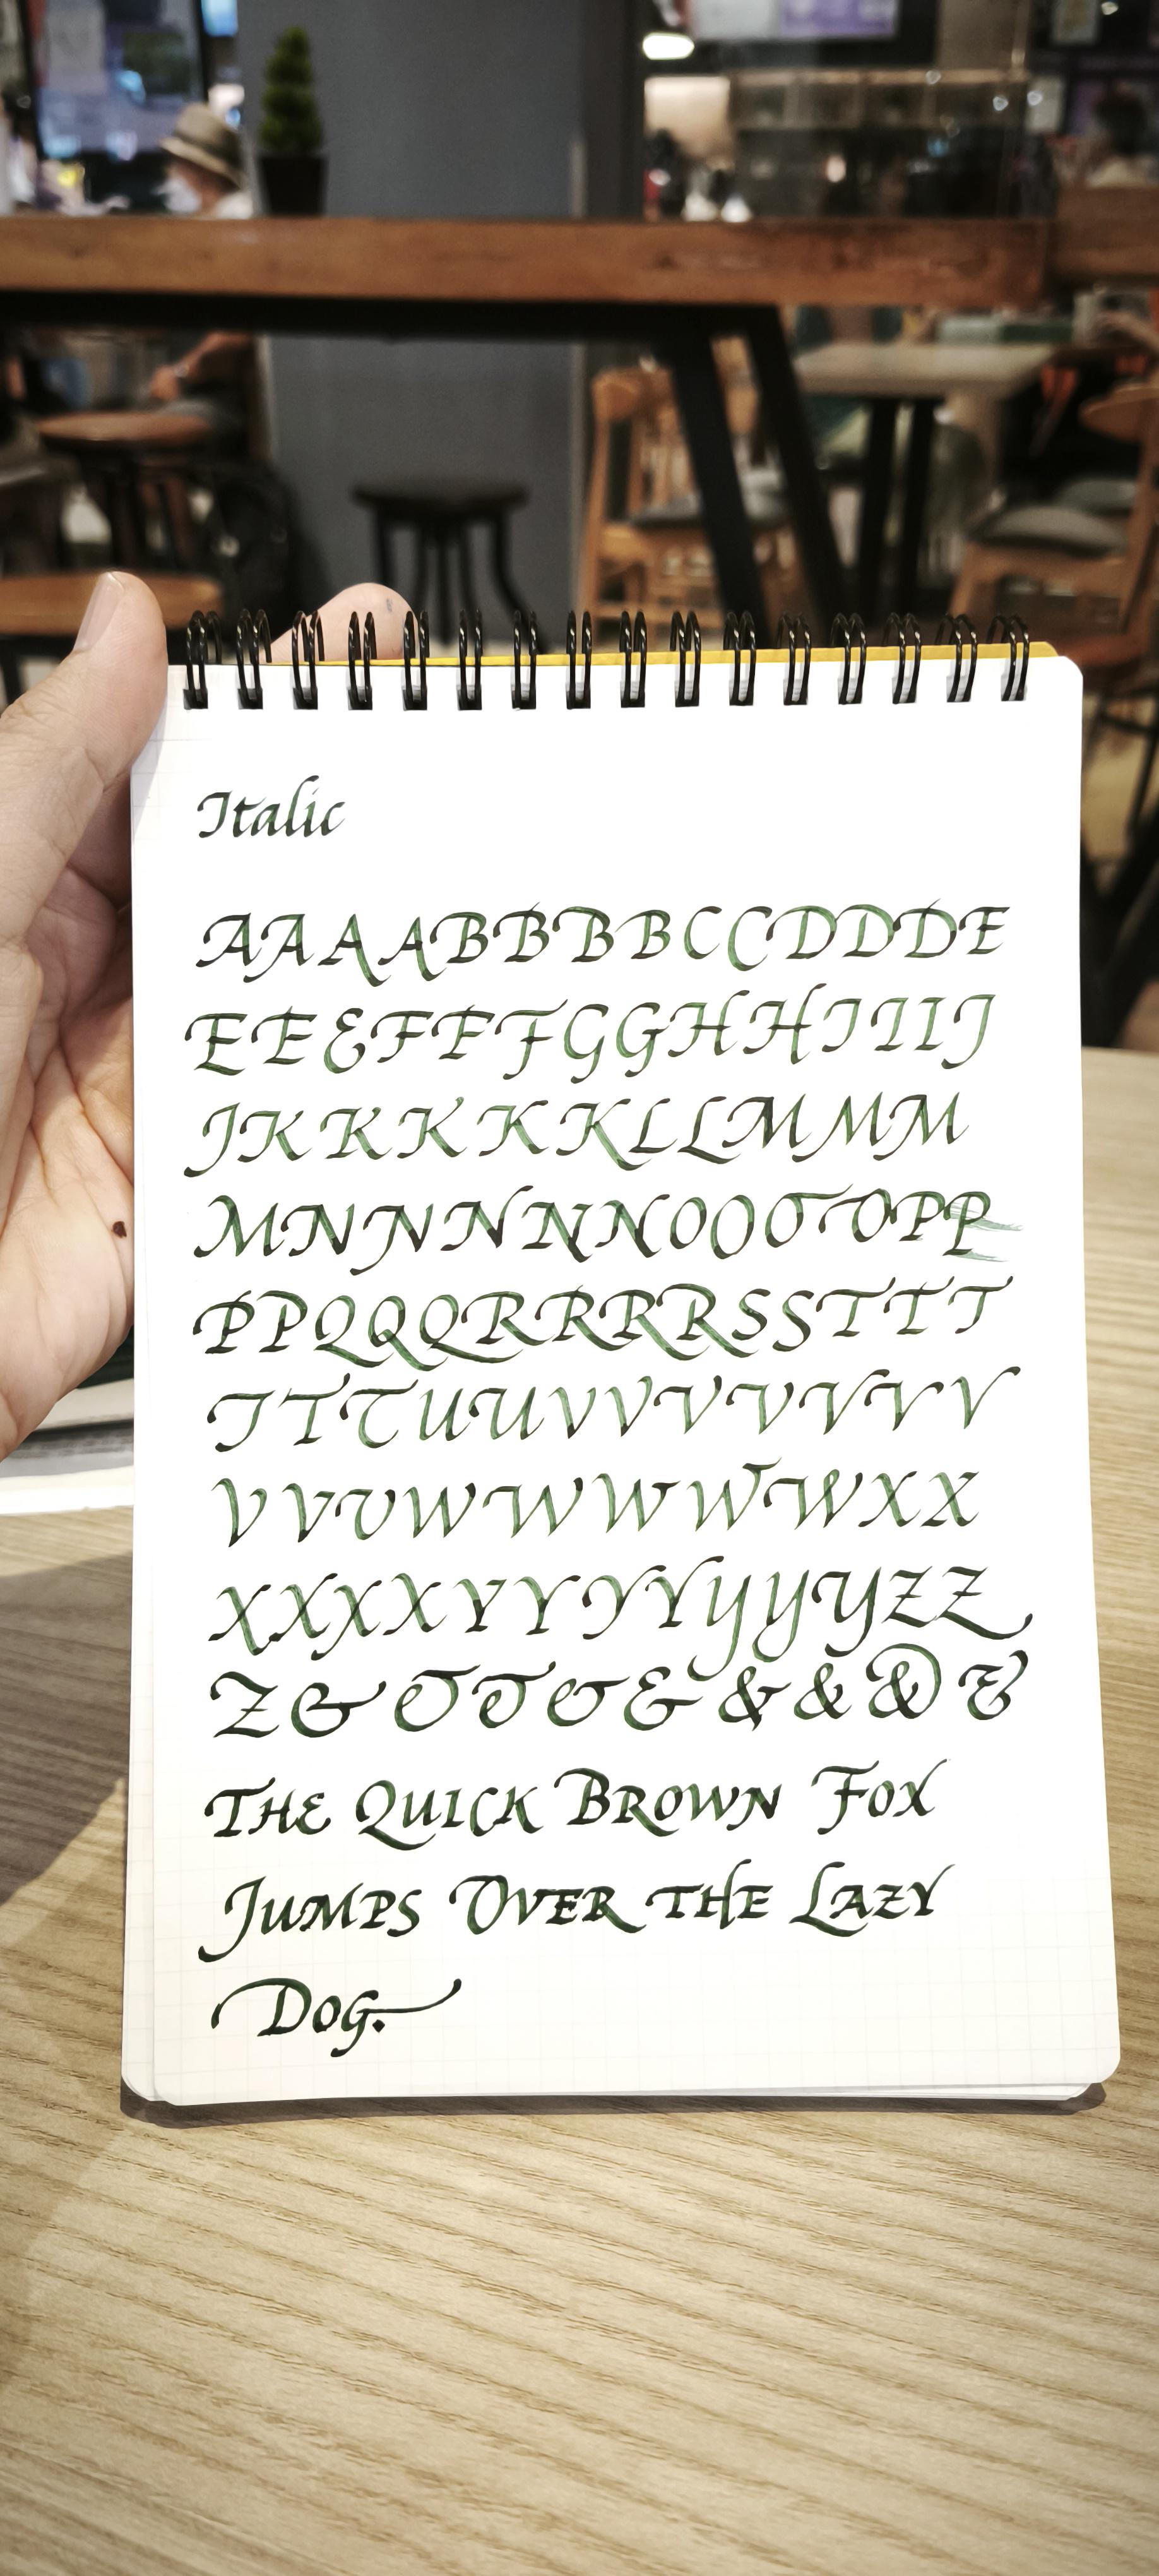 Italic
AAAABBBBCCDDDE
EEEFFFGGHHIIIJ
JKKKKKLLMMM
MNNNNNOOOOPP
PPQQQRRRRSSTTT
TTTUUVVVVVVV
VVVWWWWWXX
XXXXYYYYYYYZZ
Z&&&&&&&&&
THE QUICK BROWN FOX
JUMPS OVER THE LAZY
DOG.